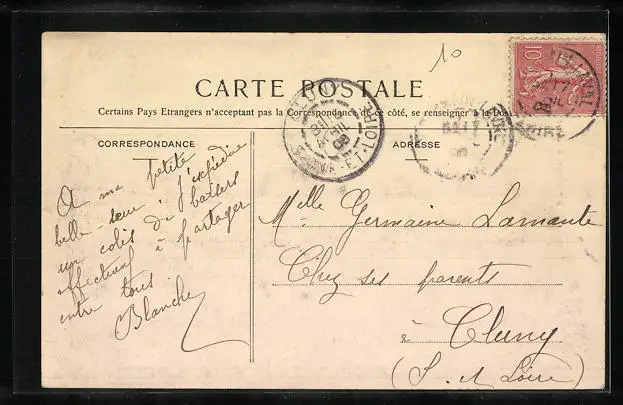 10
CARTE POSTALE
Certains Pays Etrangers n'acceptant pas la Correspondance de ce côté, se renseigner à la Poste
CORRESPONDANCE
ADRESSE
A ma petite
belle-sœur, j'expédie
un colis de baisers
affectueux à partager
entre tous
Blanche
Melle Germaine Lamante
Chez ses parents
à Cluny
(S. et Loire)
CLUNY
SAONE-ET-LOIRE
10